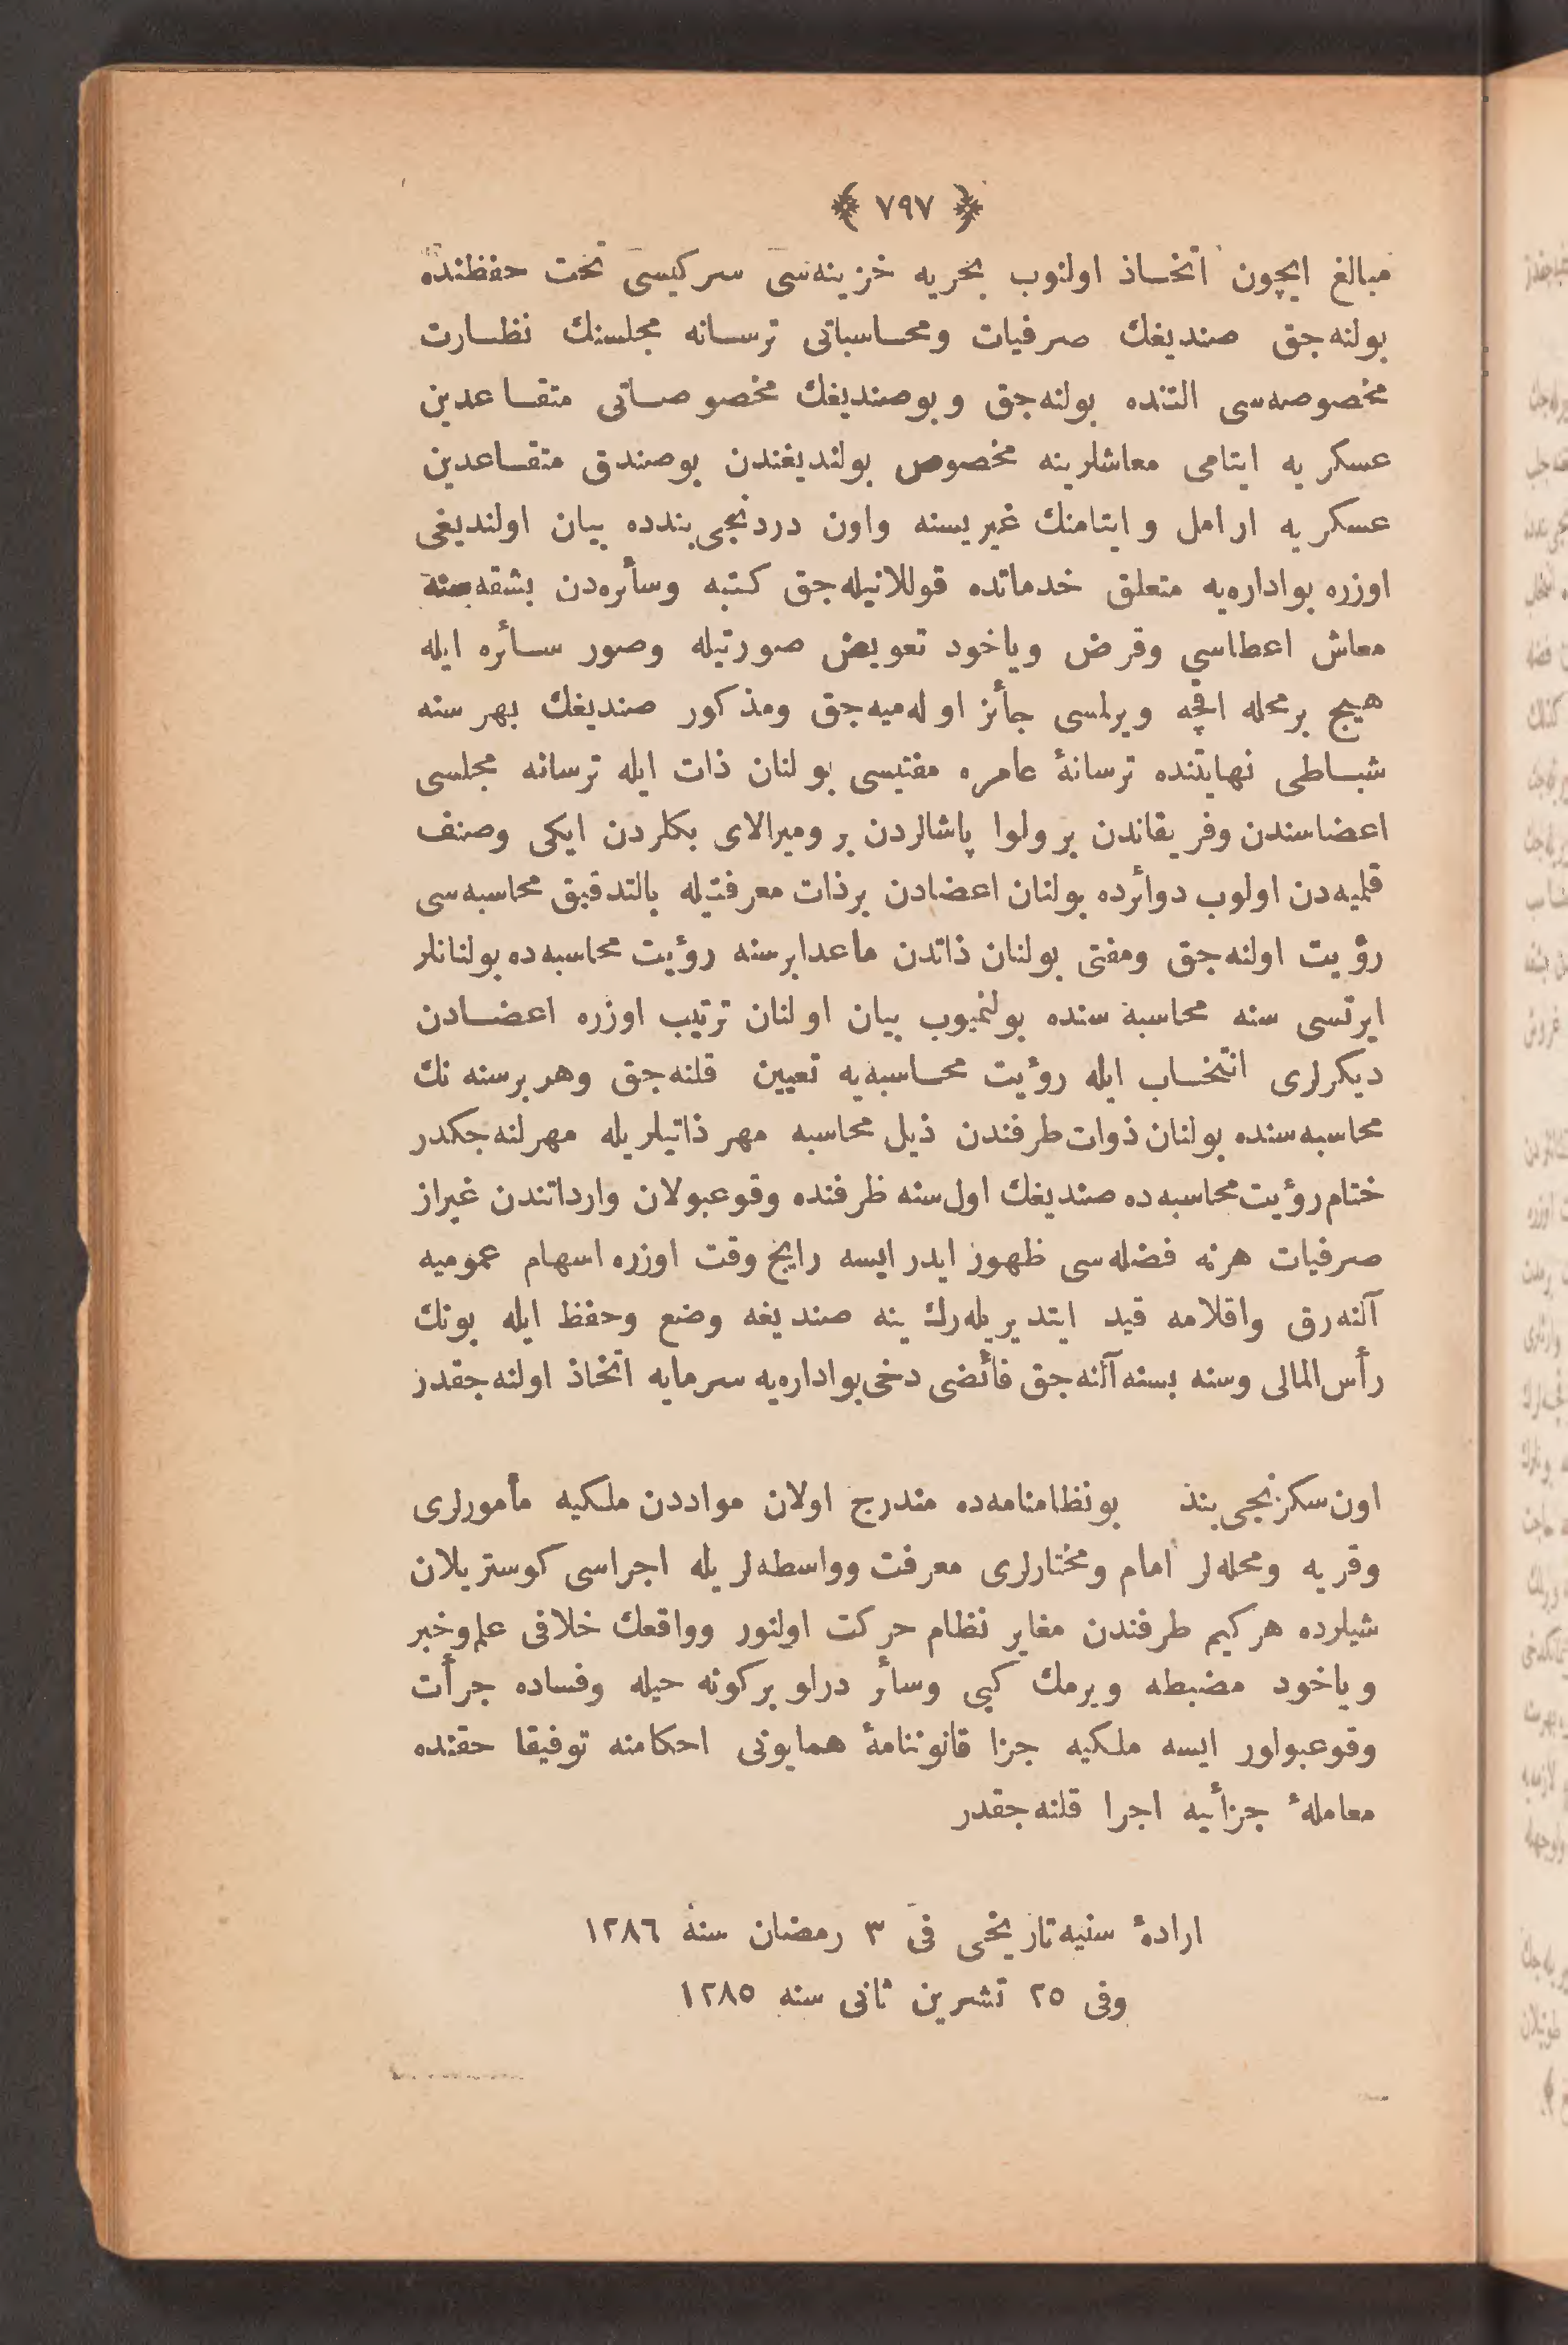 ﴿ ٧٩٧ ﴾
مبالغ ايچون اتخاذ اولنوب بحريه خزينه‌سى سركيسى تحت حفظنده
بولنه‌جق صنديغك صرفيات ومحاسباتى ترسانه مجلسنك نظارت
مخصوصه‌سى التنده بولنه‌جق وبوصنديغك مخصوصاتى متقاعدين
عسكريه ايتامى معاشلرينه مخصوص بولنديغندن بوصندق متقاعدين
عسكريه ارامل وايتامنك غيريسنه واون دردنجى بندده بيان اولنديغى
اوزره بواداره‌يه متعلق خدماتده قوللانيله‌جق كتبه وسأره‌دن بشقه‌سنه
معاش اعطاسي وقرض وياخود تعويض صورتيله وصور سأره ايله
هيچ برمحله اقچه ويرلمسى جأئز اوله‌ميه‌جق ومذكور صنديغك بهر سنه
شباطى نهايتنده ترسانهٔ عامره مفتيسى بولنان ذات ايله ترسانه مجلسى
اعضاسندن وفريقاندن بر ولوا پاشالردن بر وميرالاى بكلردن ايكى وصنف
قلميه‌دن اولوب دوأرده بولنان اعضادن برذات معرفتيله بالتدقيق محاسبه‌سى
رؤيت اولنه‌جق ومفتى بولنان ذاتدن ماعدا برسنه رؤيت محاسبه‌ده بولنانلر
ايرتسى سنه محاسبه سنده بولنميوب بيان اولنان ترتيب اوزره اعضادن
ديكرلرى انتخاب ايله رؤيت محاسبه‌يه تعيين قلنه‌جق وهر برسنه نك
محاسبه‌سنده بولنان ذوات طرفندن ذيل محاسبه مهر ذاتيلريله مهرلنه‌جكدر
ختام رؤيت محاسبه‌ده صنديغك اول سنه ظرفنده وقوعبولان وارداتندن غيراز
صرفيات هرنه فضله‌سى ظهور ايدر ايسه رايج وقت اوزره اسهام عموميه
آلنه‌رق واقلامه قيد ايتديريله‌رك ينه صنديغه وضع وحفظ ايله بونك
رأس المالى وسنه بسنه آلنه‌جق فأئضى دخى بواداره‌يه سرمايه اتخاذ اولنه‌جقدر
اون سكزنجى بند بونظامنامه‌ده مندرج اولان مواددن ملكيه مأمورلرى
وقريه ومحله‌لر امام ومختارلرى معرفت وواسطه‌لريله اجراسى كوستريلان
شيلرده هركيم طرفندن مغاير نظام حركت اولنور وواقعك خلافى علم وخبر
وياخود مضبطه ويرمك كبى وسأر درلو بركونه حيله وفساده جرأت
وقوعبولور ايسه ملكيه جزا قانوننامهٔ همايونى احكامنه توفيقا حقنده
معاملهٔ جزأيه اجرا قلنه‌جقدر
ارادهٔ سنيه تاريخى فى ٣ رمضان سنه ١٢٨٦
وفى ٢٥ تشرين ثانى سنه ١٢٨٥